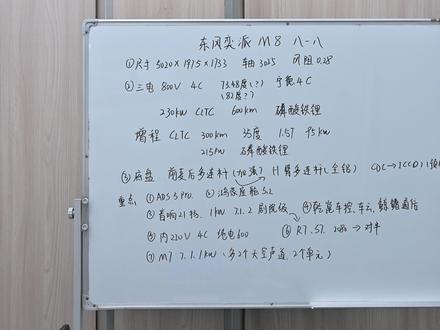 东风奕派 M8 八-八
①尺寸 5020×1975×1733 轴 3025 风阻 0.28
②三电 800V 4C 73.48度(?) 宁德4C
(82度?)
230kw CLTC 600km 磷酸铁锂
增程 CLTC 300km 35度 1.5T 95kw
215kw 磷酸铁锂
③底盘 前麦后多连杆(加强) H臂多连杆(全铝) CDC→ICCD
重点 ①ADS 5 Pro. ②鸿蒙座舱 5.2
③音响21扬. 1kw 7.1.2 剧院级 ④乾崑车控、车云、鲸鳞通信
⑤内220V 4C 纯电600 ⑥R7. S7. 2080→对半
⑦M7 7.1.1kw(多2个天空声道、2个单元)